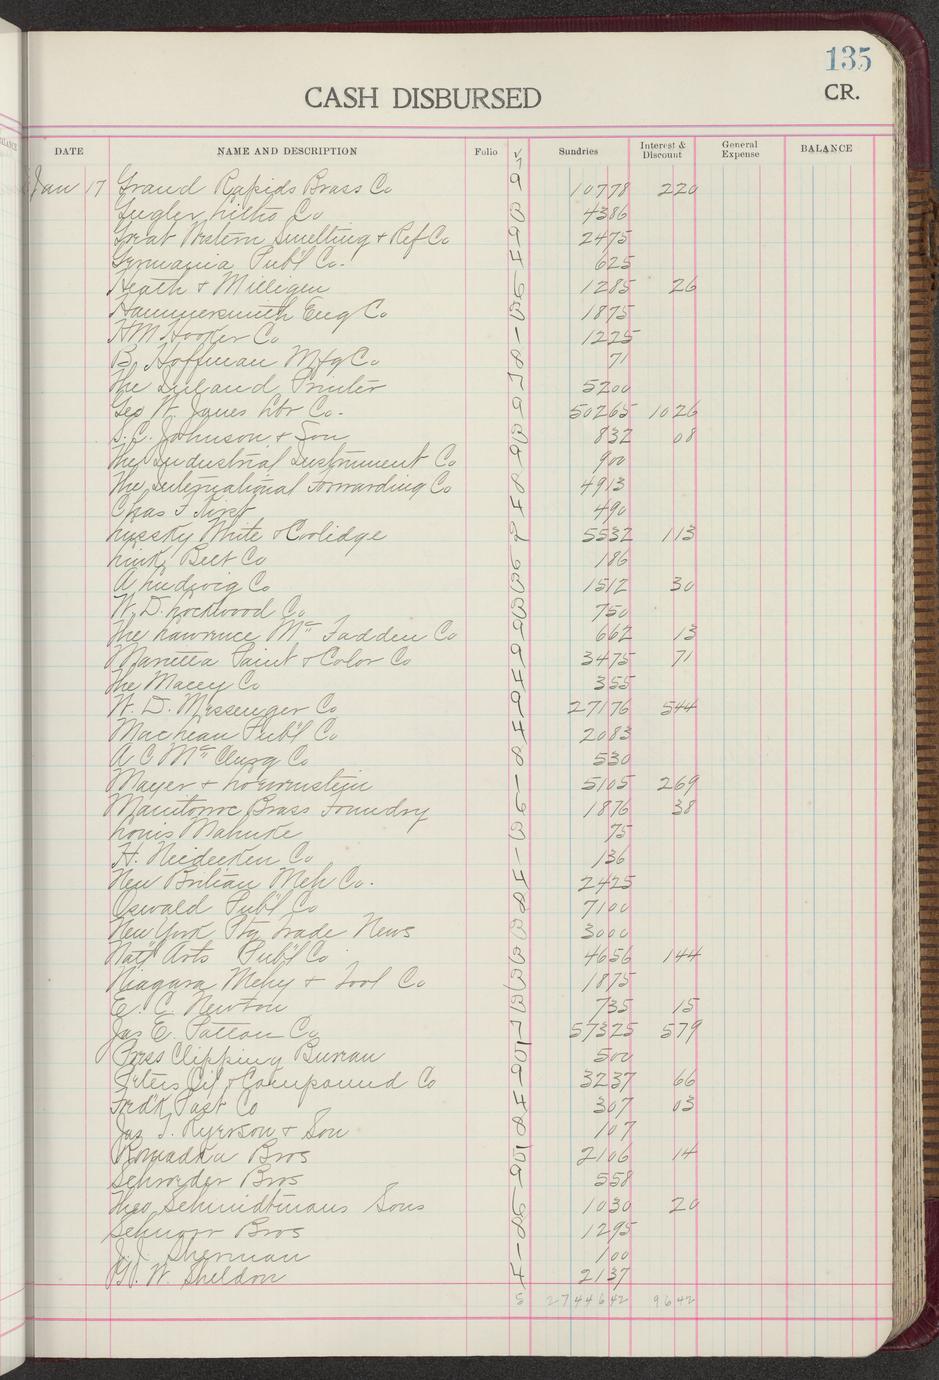 135
CASH DISBURSED
CR.
DATE NAME AND DESCRIPTION Folio √ Sundries Interest & Discount General Expense BALANCE
7
Jan 17 Grand Rapids Brass Co 9 107 78 2 20
Gugler Litho Co 3 43 86
Great Western Smelting & Ref Co 9 24 75
Germania Pub'l Co. 4 6 25
Heath & Milligen 6 12 85 26
Hammersmith Eng Co 3 18 75
H M Hooker Co 1 12 25
B. Hoffman Mfg Co 8 71
The Inland Printer 7 52 00
Geo W. Jones Lbr Co. 9 502 65 10 26
S. C. Johnson & Son 3 8 32 08
The Industrial Instrument Co 9 9 00
The International Forwarding Co 8 49 13
Chas F 4 4 90
White & Coolidge 9 55 32 1 13
Link Belt Co 6 1 86
A Ludwig Co 3 15 12 30
W. D. Lockwood Co 3 7 50
The Lawrence Mc Fadden Co 9 6 62 13
Marietta Paint & Color Co 9 34 75 71
The Macey Co 4 3 55
W. D. Messenger Co 9 271 76 5 44
MacLean Pub'l Co 4 20 83
A C Mc Clurg Co 8 5 30
Mayer & Lowenstein 1 51 05 2 69
Manitowoc Brass Foundry 6 18 76 38
Louis Mahnke 3 75
H. Neidecken Co 1 1 36
New Britian Meh Co. 4 24 25
Oswald Pub'l Co 8 71 00
New York Ptg Trade News 3 30 00
Nat'l Arts Pub'l Co 3 46 56 1 44
Niagara Mchy & Tool Co 3 18 75
E. C. Newton 3 7 35 15
Jas E. Patton Co 7 573 25 5 79
Press Clipping Bureau 5 5 00
Peters Oil & Compound Co 9 32 37 66
Fred'k Post Co 4 3 07 03
Jos. T. Ryerson & Son 8 1 07
Romadka Bros 5 21 06 14
Schroeder Bros 9 5 58
Theo Schmidtmans Sons 6 10 30 20
Bros 8 12 95
J. J. Sherman 1 1 00
W. Sheldon 4 21 37
8 27446 42 96 42